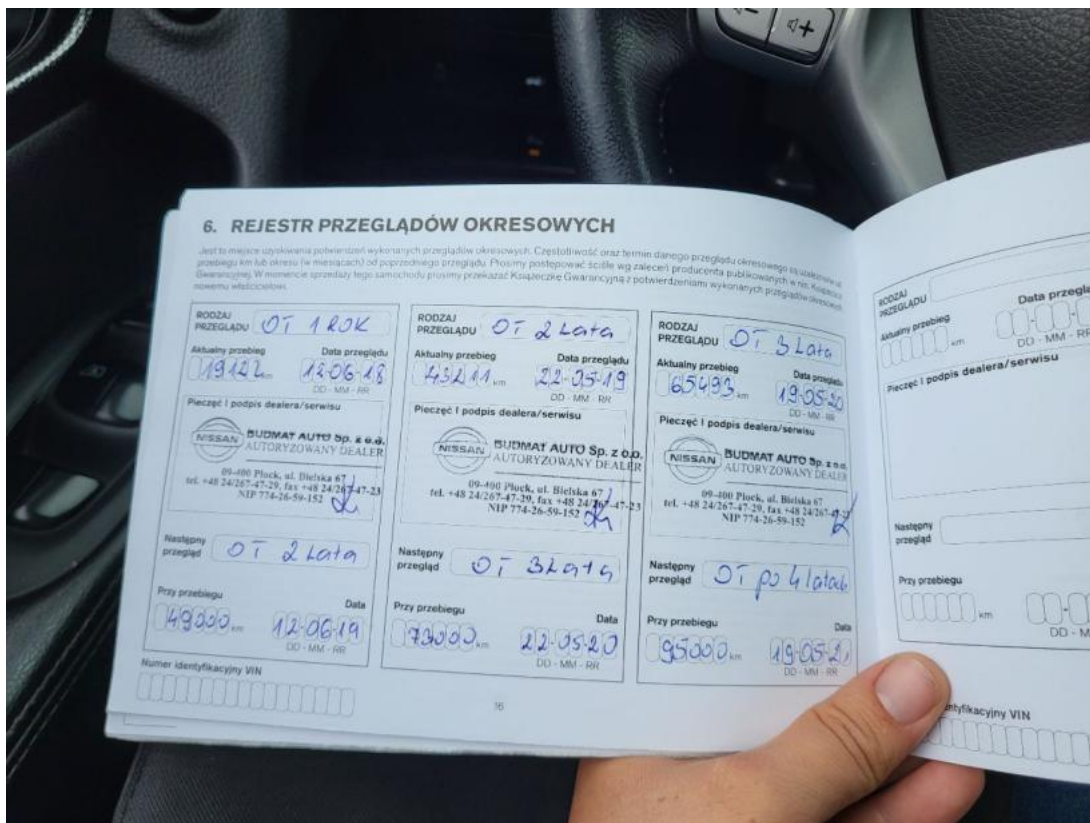 6. REJESTR PRZEGLĄDÓW OKRESOWYCH
Jest to miejsce uzyskiwania potwierdzeń wykonanych przeglądów okresowych. Częstotliwość oraz termin danego przeglądu okresowego są ustalone wg
przebiegu km lub okresu (w miesiącach) od poprzedniego przeglądu. Prosimy postępować ściśle wg zaleceń producenta publikowanych w nin. Książeczce
Gwarancyjnej. W momencie sprzedaży tego samochodu prosimy przekazać Książeczkę Gwarancyjną z potwierdzeniami wykonanych przeglądów okresowych
nowemu właścicielowi.
RODZAJ
PRZEGLĄDU OT 1 ROK
Aktualny przebieg Data przeglądu
km 12-06-18
DD - MM - RR
Pieczęć i podpis dealera/serwisu
NISSAN BUDMAT AUTO Sp. z o.o.
AUTORYZOWANY DEALER
09-400 Płock, ul. Bielska 67
tel. +48 24/267-47-29, fax +48 24/267-47-23
NIP 774-26-59-152
Następny
przegląd OT 2 Lata
Przy przebiegu Data
49000 km 12-06-19
DD - MM - RR
Numer identyfikacyjny VIN
RODZAJ
PRZEGLĄDU OT 2 Lata
Aktualny przebieg Data przeglądu
43211 km 22-05-19
DD - MM - RR
Pieczęć i podpis dealera/serwisu
NISSAN BUDMAT AUTO Sp. z o.o.
AUTORYZOWANY DEALER
09-400 Płock, ul. Bielska 67
tel. +48 24/267-47-29, fax +48 24/267-47-23
NIP 774-26-59-152
Następny
przegląd OT 3 Lata
Przy przebiegu Data
73000 km 22-05-20
DD - MM - RR
RODZAJ
PRZEGLĄDU OT 3 Lata
Aktualny przebieg Data przeglądu
65493 km 19-05-20
DD - MM - RR
Pieczęć i podpis dealera/serwisu
NISSAN BUDMAT AUTO Sp. z o.o.
AUTORYZOWANY DEALER
09-400 Płock, ul. Bielska 67
tel. +48 24/267-47-29, fax +48 24/267-47-23
NIP 774-26-59-152
Następny
przegląd OT po 4 latach
Przy przebiegu Data
95000 km 19-05-21
DD - MM - RR
16
RODZAJ
PRZEGLĄDU
Aktualny przebieg Data przeglą
km DD - MM - RR
Pieczęć i podpis dealera/serwisu
Następny
przegląd
Przy przebiegu
km DD - M
ntyfikacyjny VIN